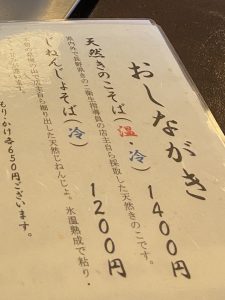 おしながき
天然きのこそば(温・冷) 1400円
県内外で長野県きのこ衛生指導員の店主自ら採取した天然きのこです。
じねんじょそば(冷) 1200円
店主自ら掘り出した天然じねんじょ。氷温熟成で粘り・
もり・かけ各650円ございます。